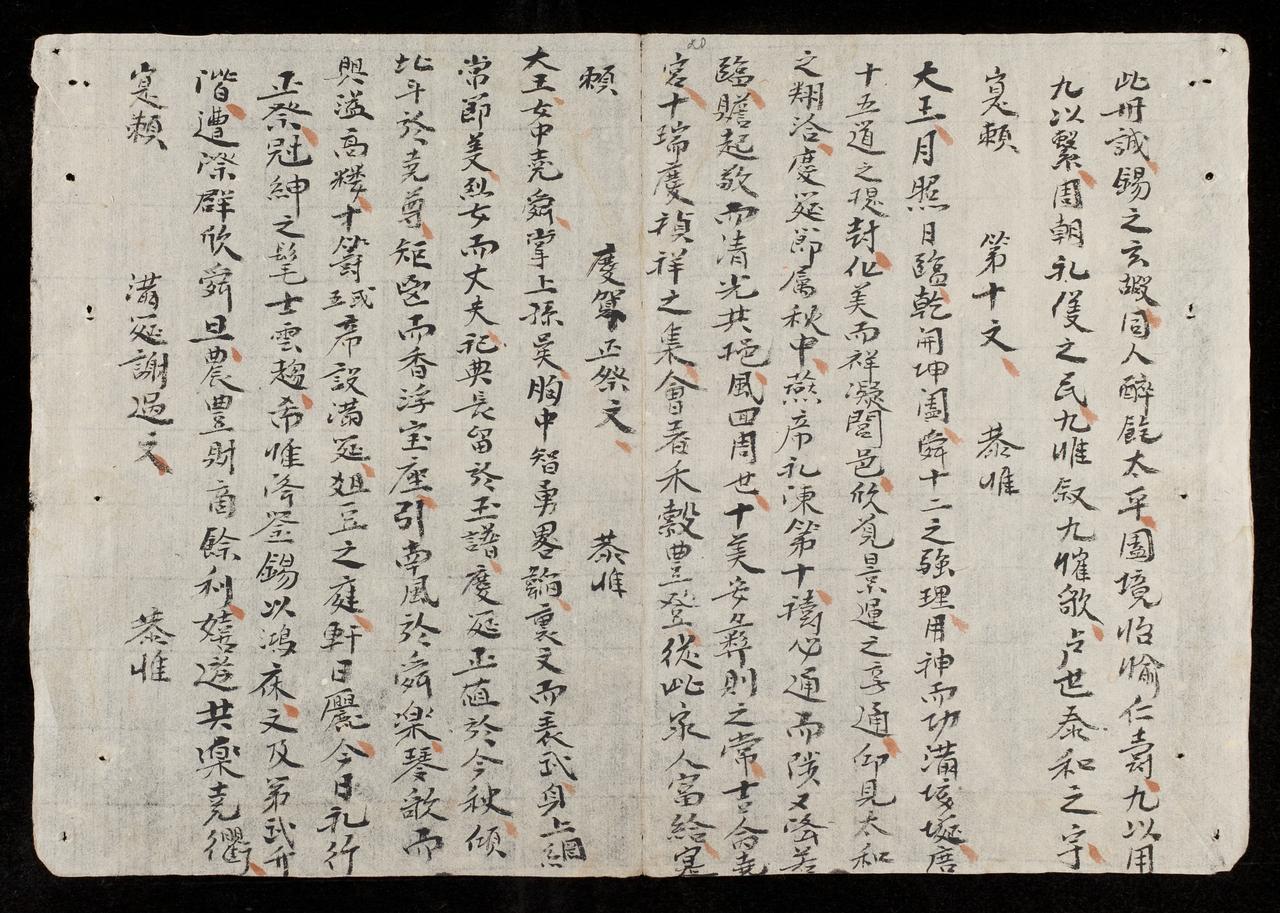 此冊誠錫之玄嘏同人醉飽太平圍境怡愉仁壽九以用
九以繫周朝礼優之民九惟叙九惟歌占世泰和之宇
寔賴 第十文 恭惟
大王月照日臨乾開坤闔舜十二之強理用神而功滿垓埏唐
十五道之現封化美而祥凝閭邑欣覓景運之享通仰見太和
之翔洽慶筵節属秋中燕席礼凍第十禱必通而陟又降若
臨瞻起敬而清光共挹風四周世十美安彝則之常吉合堯
宮十瑞慶禎祥之集會着禾穀豊登從此家人富給寔
賴 慶賀正祭文 恭惟
大王女中堯舜掌上孫吳胸中智勇畧韜裏文而表武身上綱
常節美烈女而丈夫祀典長留於玉譜慶延正值於今秋傾
北斗於堯尊矩鬯而香浮宝座引南風於舜楽琴歌而
興溢高楼十籌式席設滿筵爼豆之庭軒日麗今日礼行
正祭冠紳之髦士雲趨希惟降鉴錫以鴻庥文及第武升
階遭際群欣舜旦農豊財商餘利嬉遊共楽堯衢
寔賴 滿筵謝過文 恭惟